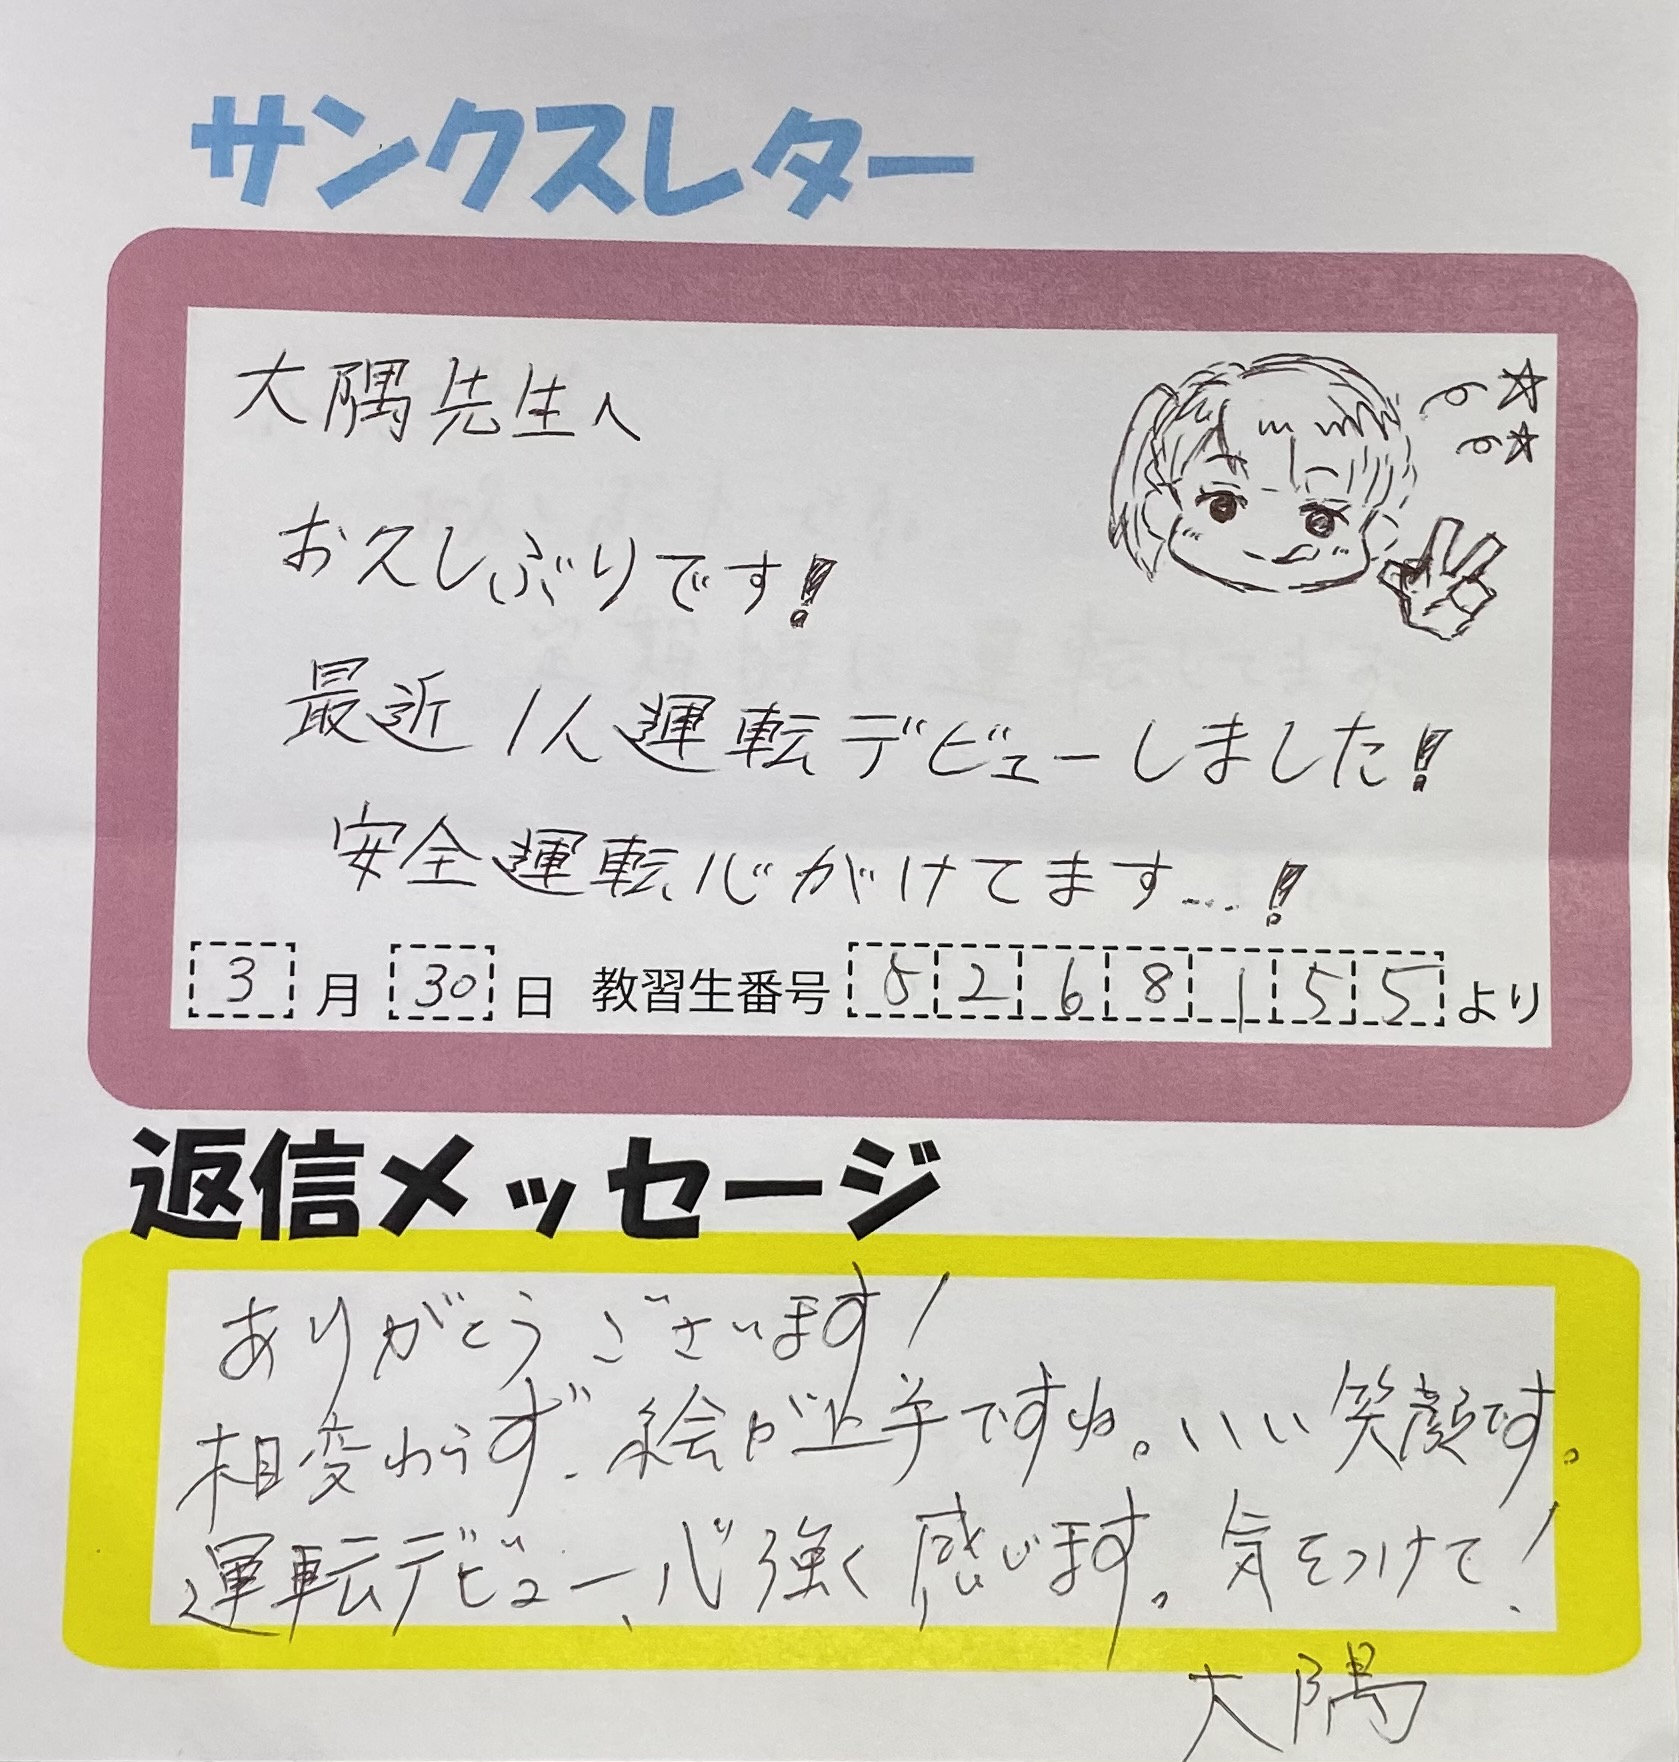 サンクスレター
大隅先生へ
お久しぶりです!
最近1人運転デビューしました!
安全運転心がけてます…!
3月30日 教習生番号 5268155より
返信メッセージ
ありがとうございます!
相変わらず、絵が上手ですね。いい笑顔です。
運転デビュー、心強く感じます。気をつけて!
大隅